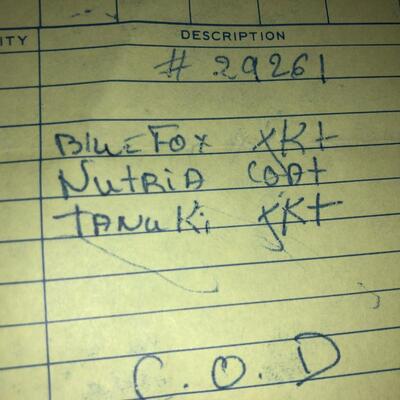 ITY DESCRIPTION
# 29261
BlUE Fox JKt
NutRiA COAt
tANuKi JKt
C.O.D